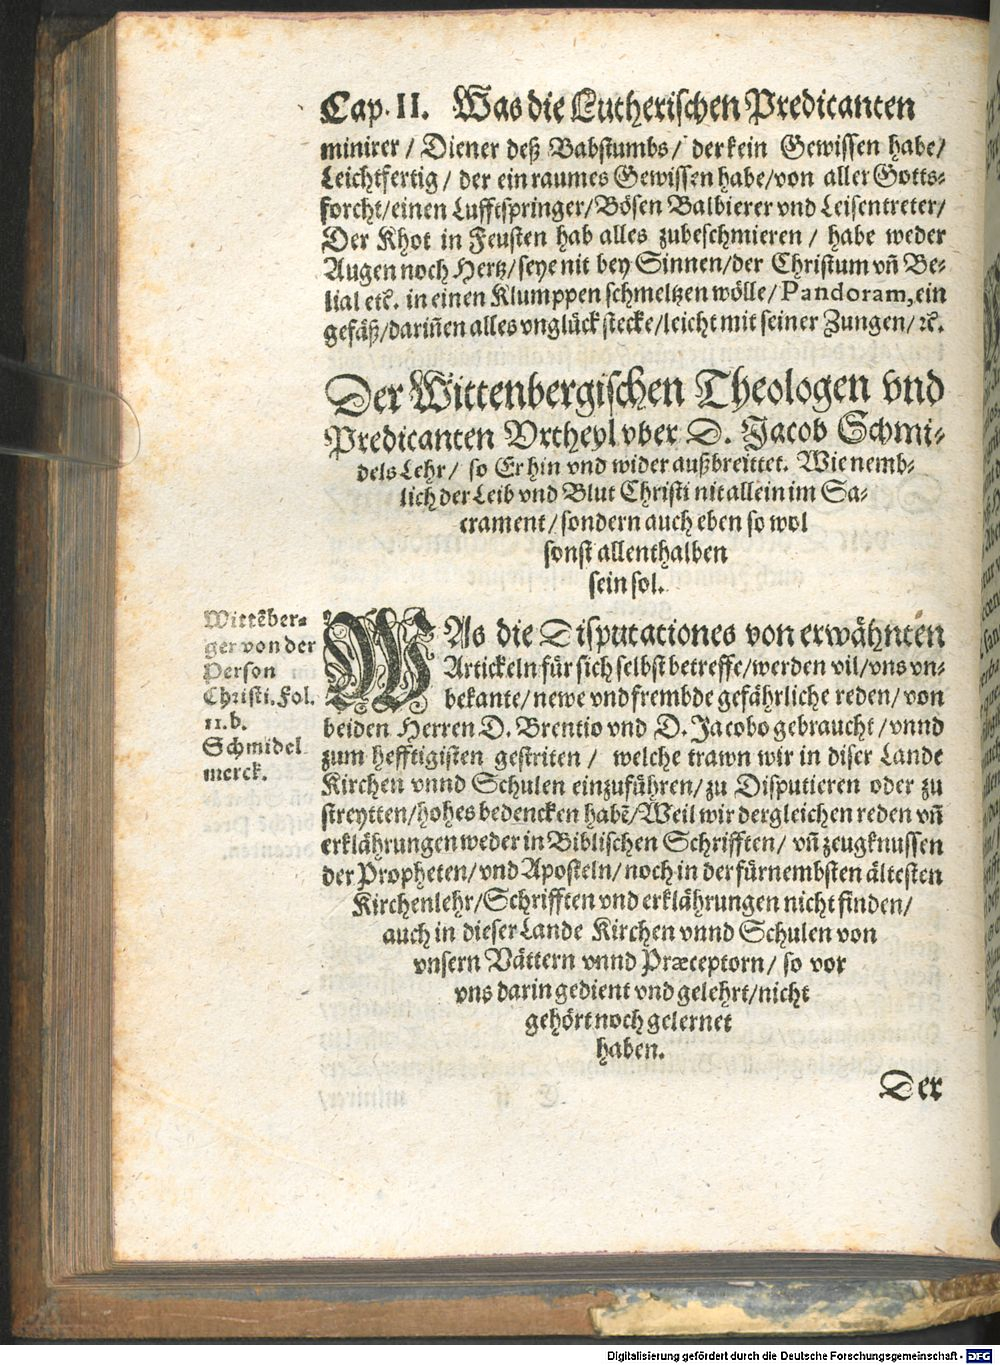 Cap. II. Was die Lutherischen Predicanten
minirer / Diener deß Babstumbs / der kein Gewissen habe /
Leichtfertig / der ein raumes Gewissen habe / von aller Gotts-
forcht / einen Lufftspringer / Bösen Balbierer vnd Leisentreter /
Der Khot in Feusten hab alles zubeschmieren / habe weder
Augen noch Hertz / seye nit bey Sinnen / der Christum vñ Be-
lial etc. in einen Klumppen schmeltzen wölle / Pandoram, ein
gefäß / dariñen alles vnglück stecke / leicht mit seiner Zungen / ꝛc.
Der Wittenbergischen Theologen vnd
Predicanten Vrtheyl vber D. Jacob Schmi-
dels Lehr / so Er hin vnd wider außbreittet. Wie nemb-
lich der Leib vnd Blut Christi nit allein im Sa-
crament / sondern auch eben so wol
sonst allenthalben
sein sol.
Wittẽber-
ger von der
Person
Christi. Fol.
11. b.
Schmidel
merck.
WAs die Disputationes von erwähnten
Artickeln für sich selbst betreffe / werden vil / vns vn-
bekante / newe vnd frembde gefährliche reden / von
beiden Herren D. Brentio vnd D. Jacobo gebraucht / vnnd
zum hefftigisten gestriten / welche trawn wir in diser Lande
Kirchen vnnd Schulen einzuführen / zu Disputieren oder zu
streytten / hohes bedencken habẽ / Weil wir dergleichen reden vñ
erklährungen weder in Biblischen Schrifften / vñ zeugknussen
der Propheten / vnd Aposteln / noch in der fürnembsten ältesten
Kirchenlehr / Schrifften vnd erklährungen nicht finden /
auch in dieser Lande Kirchen vnnd Schulen von
vnsern Vättern vnnd Præceptorn / so vor
vns darin gedient vnd gelehrt / nicht
gehört noch gelernet
haben.
Der
Digitalisierung gefördert durch die Deutsche Forschungsgemeinschaft - DFG